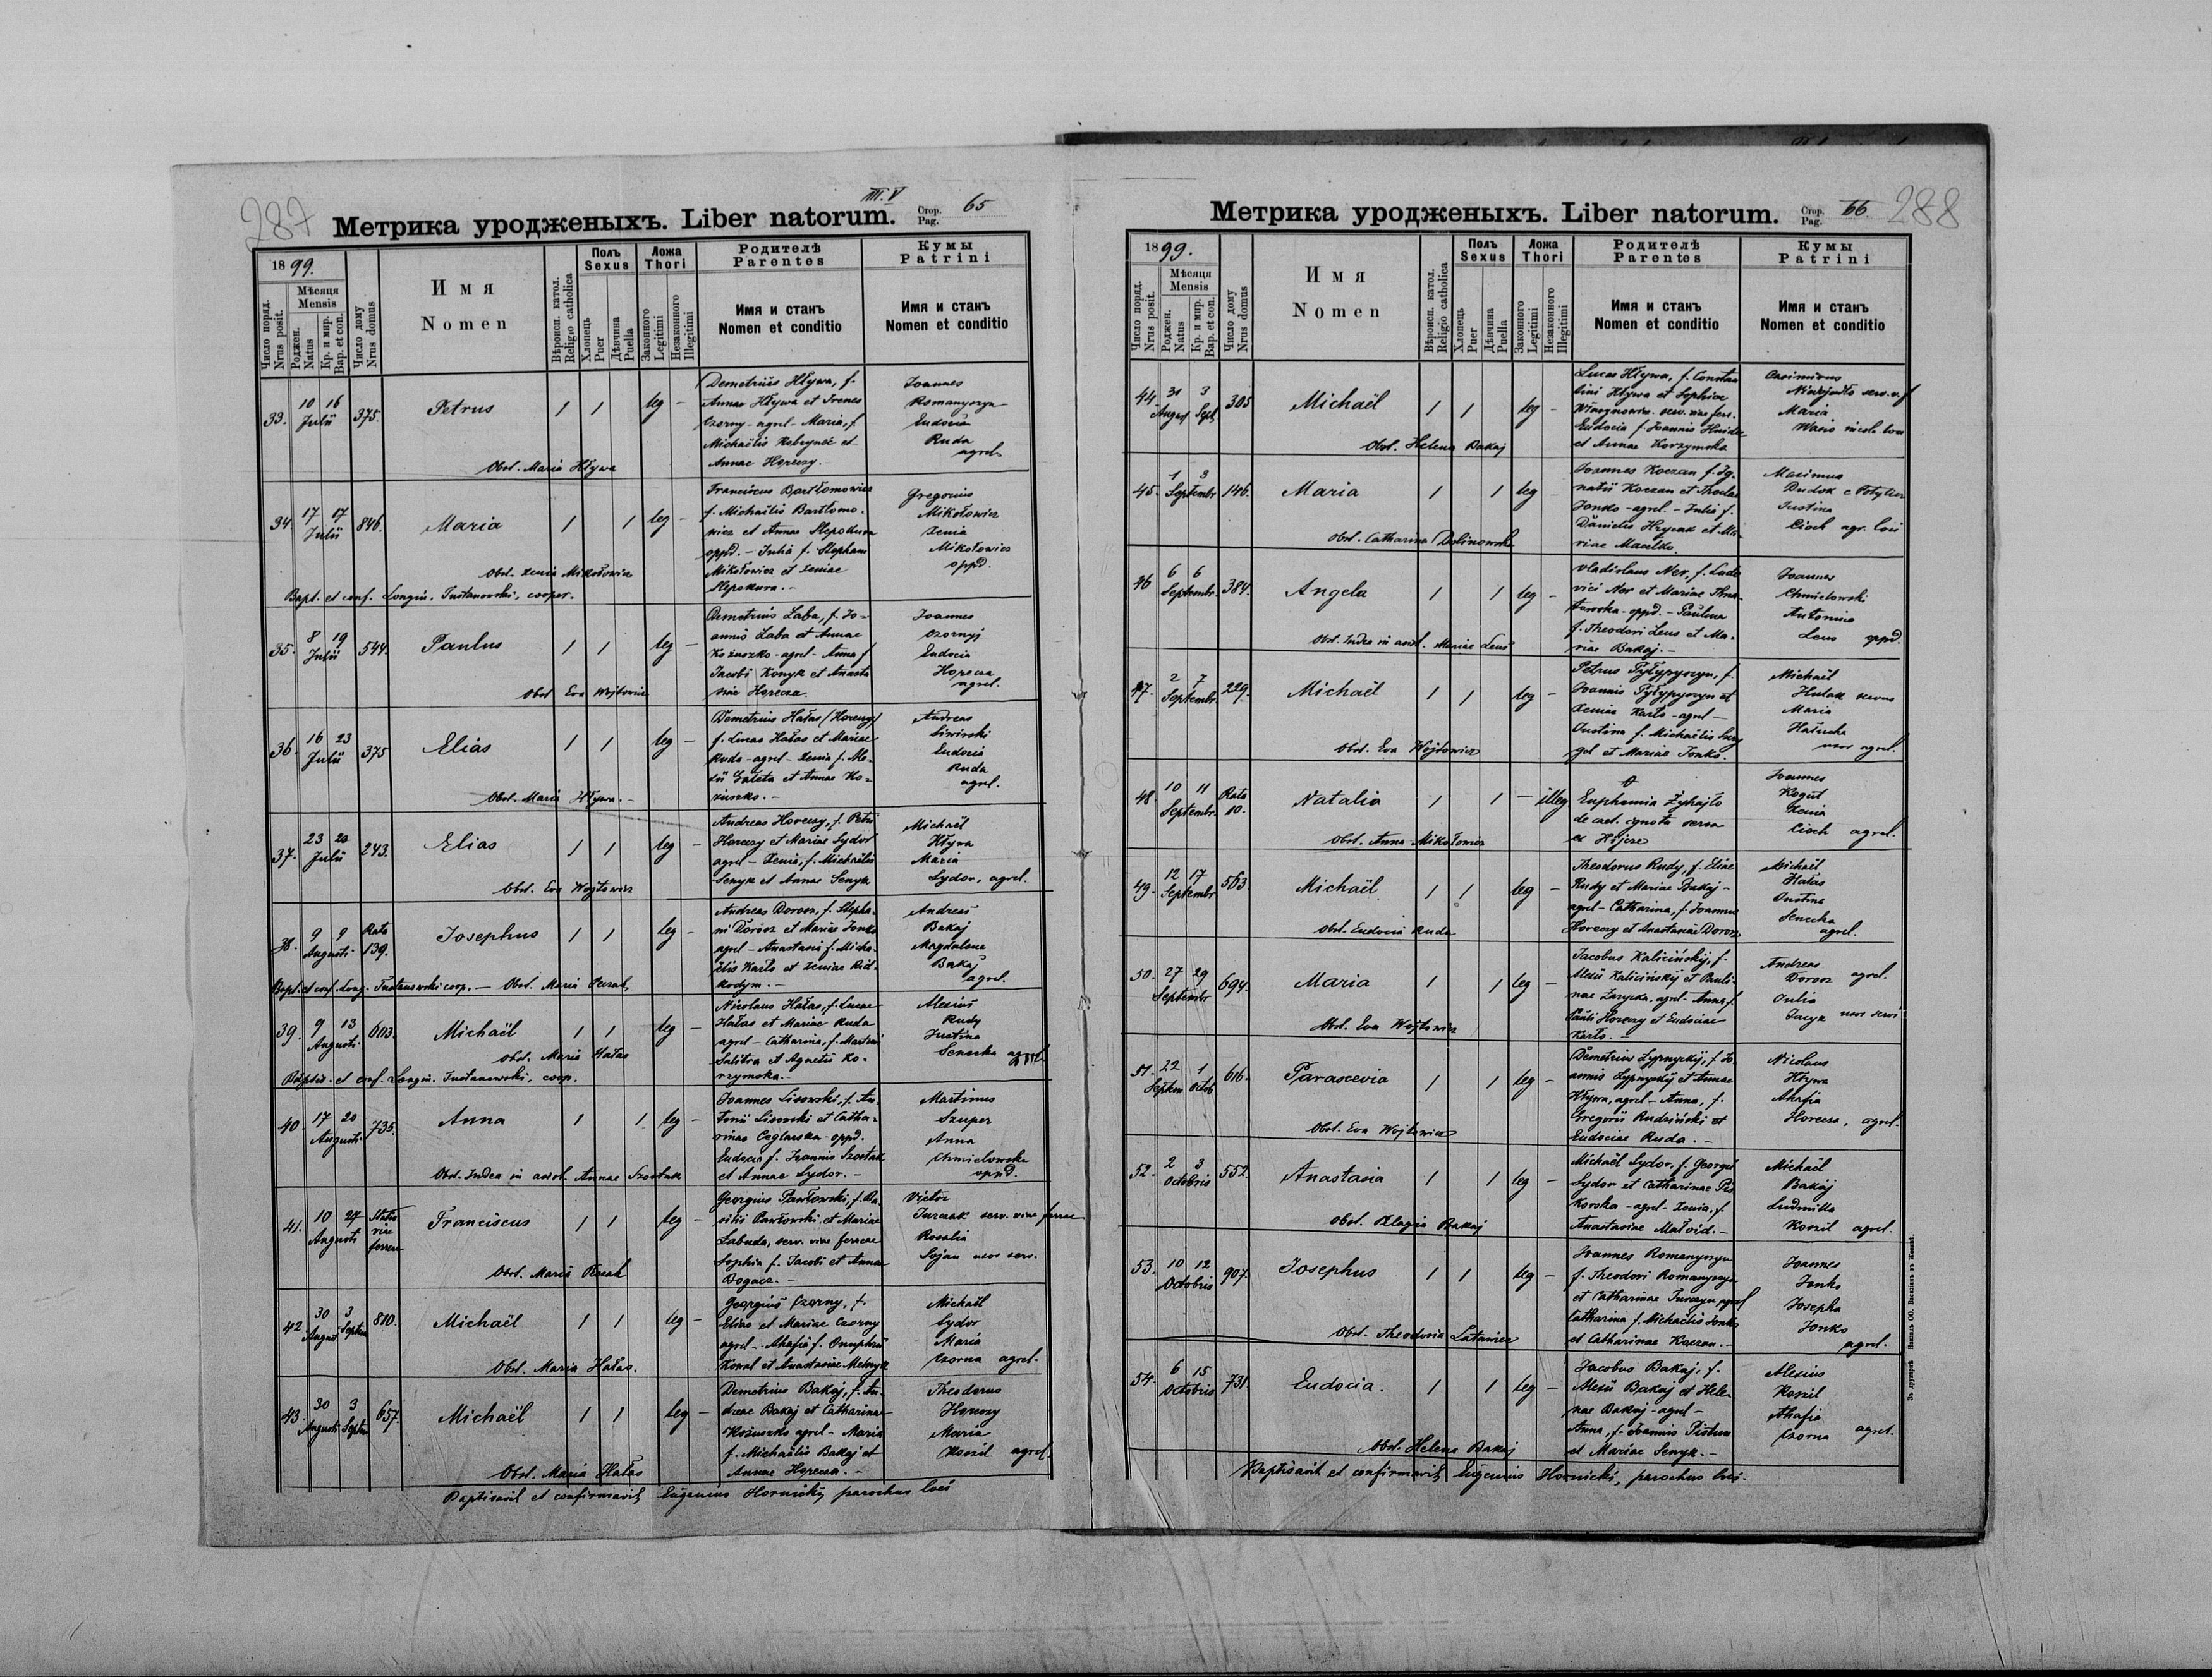 287
III. V
Метрика уродженыхъ. Liber natorum.
Стор. Pag. 65
1899.
Число поряд. Nrus posit.
Мѣсяця Mensis
Роджен. Natus
Кр. и мир. Bap. et con.
Число дому Nrus domus
Имя Nomen
Вѣроисп. катол. Religio catholica
Полъ Sexus
Хлопець Puer
Дѣвчина Puella
Ложа Thori
Законного Legitimi
Незаконного Illegitimi
Родителѣ Parentes
Имя и станъ Nomen et conditio
Кумы Patrini
Имя и станъ Nomen et conditio
33. 10 16 Julii 375. Petrus 1 1 leg -
Demetrius Hływa, f.
Annae Hływa et Irenes
Czorny - agrel - Maria, f.
Michaëlis
Annae Horeczy. -
Joannes
Romanyszyn
Eudocia
Ruda
agrel.
Obst. Maria Hływa
34 17 17 Julii 846. Maria 1 1 leg -
Franciscus Bartłomowicz
f. Michaëlis Bartłomo-
wicz et Annae Slepokura
oppd. - Julia f. Stephani
Mikołowicz et Xeniae
Slepokura. -
Gregorius
Mikołowicz
Xenia
Mikołowicz
oppd.
Obst. Xenia Mikołowicz
Bapt. et conf. Longin. Tustanowski, cooper.
35. 8 19 Julii 544. Paulus 1 1 leg -
Demetrius Laba, f. Jo-
annis Laba et Annae
Kożuszko - agrel - Anna f.
Jacobi Konyk et Anasta
siae Horecza.
Joannes
Czornyj
Eudocia
Horecza
agrel.
Obst Eva Wojtowicz
36. 16 23 Julii 375 Elias 1 1 leg -
Demetrius Hałas (Horeczy)
f. Lucas Hałas et Mariae
Ruda - agrel - Xenia f. Ale-
xii Galeta et Annae Ko-
żuszko. -
Andreas
Siwirski
Eudocia
Ruda
agrel.
Obst. Maria Hływa. -
37. 23 20 Julii 243. Elias 1 1 leg -
Andreas Horeczy, f. Petri
Horeczy et Mariae Sydor
agrel - Xenia, f. Michaëlis
Senyk et Annae Senyk
Michaël
Hływa
Maria
Sydor, agrel.
Obst. Eva Wojtowicz
38. 9 9 Augusti Rata 139. Josephus 1 1 leg -
Andreas Dorosz, f. Stepha-
ni Dorosz et Mariae Jonko
agrel - Anastasia f. Micha-
ëlis Karło et Xeniae
kodym. -
Andreas
Bakaj
Magdalena
Bakaj
agrel.
Bapt. et conf. Long. Tustanowski coop. - Obst. Maria
39. 9 13 Augusti 603. Michaël 1 1 leg -
Nicolaus Hałas, f. Lucae
Hałas et Mariae Ruda
agrel - Catharina, f. Martini
Salitra et Agnetis Ko-
rzymska. -
Alexius
Rudy
Justina
Senecka agrel
Obst. Maria Hałas
Baptis. et conf. Longin. Tustanowski, coop.
40. 17 20 Augusti 735. Anna 1 1 leg -
Joannes Lisowski, f. An-
tonii Lisowski et Catha-
rinae Ceglarska - oppd.
Eudocia f. Joannis Szostak
et Annae Sydor. -
Martinus
Szuper
Anna
Chmielowska
oppd.
Obst. Judea in assist. Annae Szostak
41. 10 27 Augusti Statio viae ferreae Franciscus 1 1 leg -
Georgius Pawłowski, f. Ba-
silii Pawłowski et Mariae
Labuda, serv. viae ferreae
Sophia f. Jacobi et Annae
Bogacz. -
Victor
Jurczak serv. viae ferreae
Rosalia
Sojan uxor serv.
Obst. Maria
42. 30 August 3 Septem 810. Michaël 1 1 leg -
Georgius Czorny, f.
Eliae et Mariae Czorny
agrel - Ahafia f. Onuphrii
Kowal et Anastasiae Melnyk
Michaël
Sydor
Maria
Czorna agrel.
Obst. Maria Hałas.
43. 30 Augusti 3 Septem 657. Michaël 1 1 leg -
Demetrius Bakaj, f. An-
dreae Bakaj et Catharinae
Kożuszko agrel - Maria
f. Michaëlis Bakaj et
Annae Horecza. -
Theodorus
Horeczy
Maria
Koszil agrel.
Obst. Maria Hałas
Baptisavit et confirmavit Eugenius Hornicki, parochus loci
Метрика уродженыхъ. Liber natorum.
Стор. Pag. 66.
288
1899.
Число поряд. Nrus posit.
Мѣсяця Mensis
Роджен. Natus
Кр. и мир. Bap. et con.
Число дому Nrus domus
Имя Nomen
Вѣроисп. катол. Religio catholica
Полъ Sexus
Хлопець Puer
Дѣвчина Puella
Ложа Thori
Законного Legitimi
Незаконного Illegitimi
Родителѣ Parentes
Имя и станъ Nomen et conditio
Кумы Patrini
Имя и станъ Nomen et conditio
44. 31 August 3 Sept 305 Michaël 1 1 leg -
Lucas Hływa, f. Constan
tini Hływa et Sophiae
serv. viae ferr.
Eudocia f. Joannis
et Annae Korzymska
Casimirus
serv. v. f
Maria
Obst. Helena Bakaj
45. 1 3 Septembr 146. Maria 1 1 leg
Joannes Koczan f. Ig-
natii Koczan et Theclae
Jonko - agrel. - Julia f.
Danielis Hrycak et Ma-
riae Macełko.
Maximus
Dudok e Potylicz
Justina
Cioch agr. loci
Obst. Catharina Dolinowska
46 6 6 Septembr. 384. Angela 1 1 leg -
Vladislaus Ner, f. Ludo
vici Ner et Mariae
oppd. - Paulina
f. Theodori Leus et Ma-
riae Bakaj. -
Joannes
Chmielowski
Antonina
Leus oppd.
Obst. Judea in assist. Mariae Leus
47. 2 7 Septembr 229. Michaël 1 1 leg -
Petrus Pyłypyszyn, f.
Joannis Pyłypyszyn et
Xeniae Karło - agrel -
Justina f. Michaëlis
et Mariae Jonko.
Michaël
Hulak servus
Maria
Hałucha
uxor agrel.
Obst. Eva Wojtowicz
48. 10 11 Septembr. Rata 10. Natalia 1 1 - illeg
Euphemia Żyhajło
de caet. ignota serva
ex Hojcze
Joannes
Kogut
Xenia
Cioch agrel.
Obst. Anna Mikołowicz
49. 12 17 Septembr 563. Michaël 1 1 leg -
Theodorus Rudy, f. Eliae
Rudy et Mariae Bakaj -
agrel - Catharina, f. Joannis
Horeczy et Anastasiae Dorosz
Michaël
Hałas
Justina
Senecka
agrel.
Obst. Eudocia Ruda
50. 27 29 Septembr 694. Maria 1 1 leg -
Jacobus Kaliciński, f.
Alexii Kaliciński et Pauli-
nae Zarycka, agrel - Anna f.
Pauli Horeczy et Eudociae
Karło. -
Andreas
Dorosz agrel.
Julia
Jacyk uxor servi
Obst. Eva Wojtowicz
51. 22 Septem 1 Octob 616. Parascevia 1 1 leg -
Demetrius Lypnyckij, f. Jo-
annis Lypnyckij et Annae
Hływa, agrel - Anna, f.
Gregorii Rudziński et
Eudociae Ruda. -
Nicolaus
Hływa
Ahafia
Horecza, agrel.
Obst. Eva Wojtowicz
52. 2 3 Octobris 552. Anastasia 1 1 leg -
Michaël Sydor, f. Georgii
Sydor et Catharinae Pis
korska - agrel - Xenia, f.
Anastasiae Matwid. -
Michaël
Bakaj
Ludmilla
Koszil agrel.
Obst. Pelagia Bakaj
53. 10 12 Octobris 907. Josephus 1 1 leg -
Joannes Romanyszyn
f. Theodori Romanyszyn
et Catharinae Jurczyn agrel
Catharina f. Michaëlis Jonko
et Catharinae Koczan. -
Joannes
Jonko
Josepha
Jonko
agrel.
Obst. Theodosia Latawiec
54. 6 15 Octobris 731. Eudocia. 1 1 leg -
Jacobus Bakaj, f.
Alexii Bakaj et Hele-
nae Bakaj - agrel -
Anna, f. Joannis Pistun
et Mariae Senyk. -
Alexius
Koszil
Ahafia
Czorna agrel.
Obst. Helena Bakaj
Baptisavit et confirmavit Eugenius Hornicki, parochus loci.